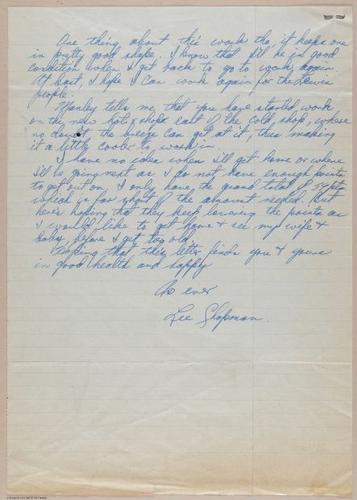 One thing about this work tho, it keeps one
in pretty good shape, I know that I'll be in good
condition when I get back to go to work again.
At least, I hope I can work again for the
people.
Manley tells me that you have started work
on the new hot shop east of the cold shop, where
no doubt the breeze can get at it, thus making
it a little cooler to work in.
I have no idea when I'll get home or where
I'll be going next as I do not have enough points
to get out on, I only have the grand total of
which is far short of the amount needed. But
here's hoping that they keep lowering the points as
I would like to get home & see my wife &
baby before I get too old.
Hoping that this letter finds you & yours
in good health and happy
As ever
Lee Shopman.